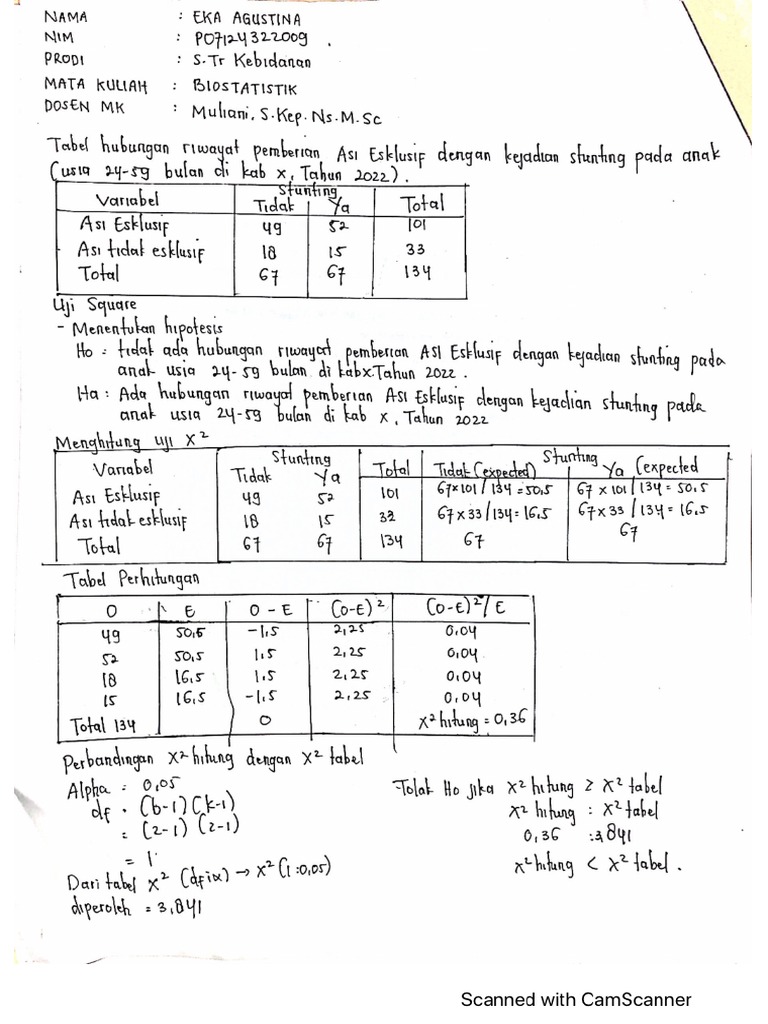 NAMA : EKA AGUSTINA
NIM : P07124322009 .
PRODI : S.Tr Kebidanan
MATA KULIAH : BIOSTATISTIK
DOSEN MK : Muliani, S.Kep.Ns.M.Sc
Tabel hubungan riwayat pemberian Asi Esklusif dengan kejadian stunting pada anak
(usia 24-59 bulan di kab x, Tahun 2022).
Variabel Stunting Total
Tidak Ya
Asi Esklusif 49 52 101
Asi tidak esklusif 18 15 33
Total 67 67 134
Uji Square
- Menentukan hipotesis
Ho : tidak ada hubungan riwayat pemberian ASI Esklusif dengan kejadian stunting pada
anak usia 24-59 bulan di kab x Tahun 2022.
Ha : Ada hubungan riwayat pemberian Asi Esklusif dengan kejadian stunting pada
anak usia 24-59 bulan di kab x, Tahun 2022
Menghitung uji X²
Variabel Stunting Total Stunting
Tidak Ya Tidak (expected) Ya (expected
Asi Esklusif 49 52 101 67x101/134=50.5 67x101/134=50.5
Asi tidak esklusif 18 15 33 67x33/134=16.5 67x33/134=16.5
Total 67 67 134 67 67
Tabel Perhitungan
O E O-E (O-E)² (O-E)²/E
49 50,5 -1,5 2,25 0,04
52 50,5 1,5 2,25 0,04
18 16,5 1,5 2,25 0,04
15 16,5 -1,5 2,25 0,04
Total 134 0 X² hitung = 0,36
Perbandingan X² hitung dengan X² tabel
Alpha = 0,05
df = (b-1)(k-1)
= (2-1) (2-1)
= 1
Dari tabel X² (df;α) → X² (1:0,05)
diperoleh = 3,841
Tolak Ho jika X² hitung ≥ X² tabel
X² hitung : X² tabel
0,36 : 3,841
X² hitung < X² tabel.
Scanned with CamScanner